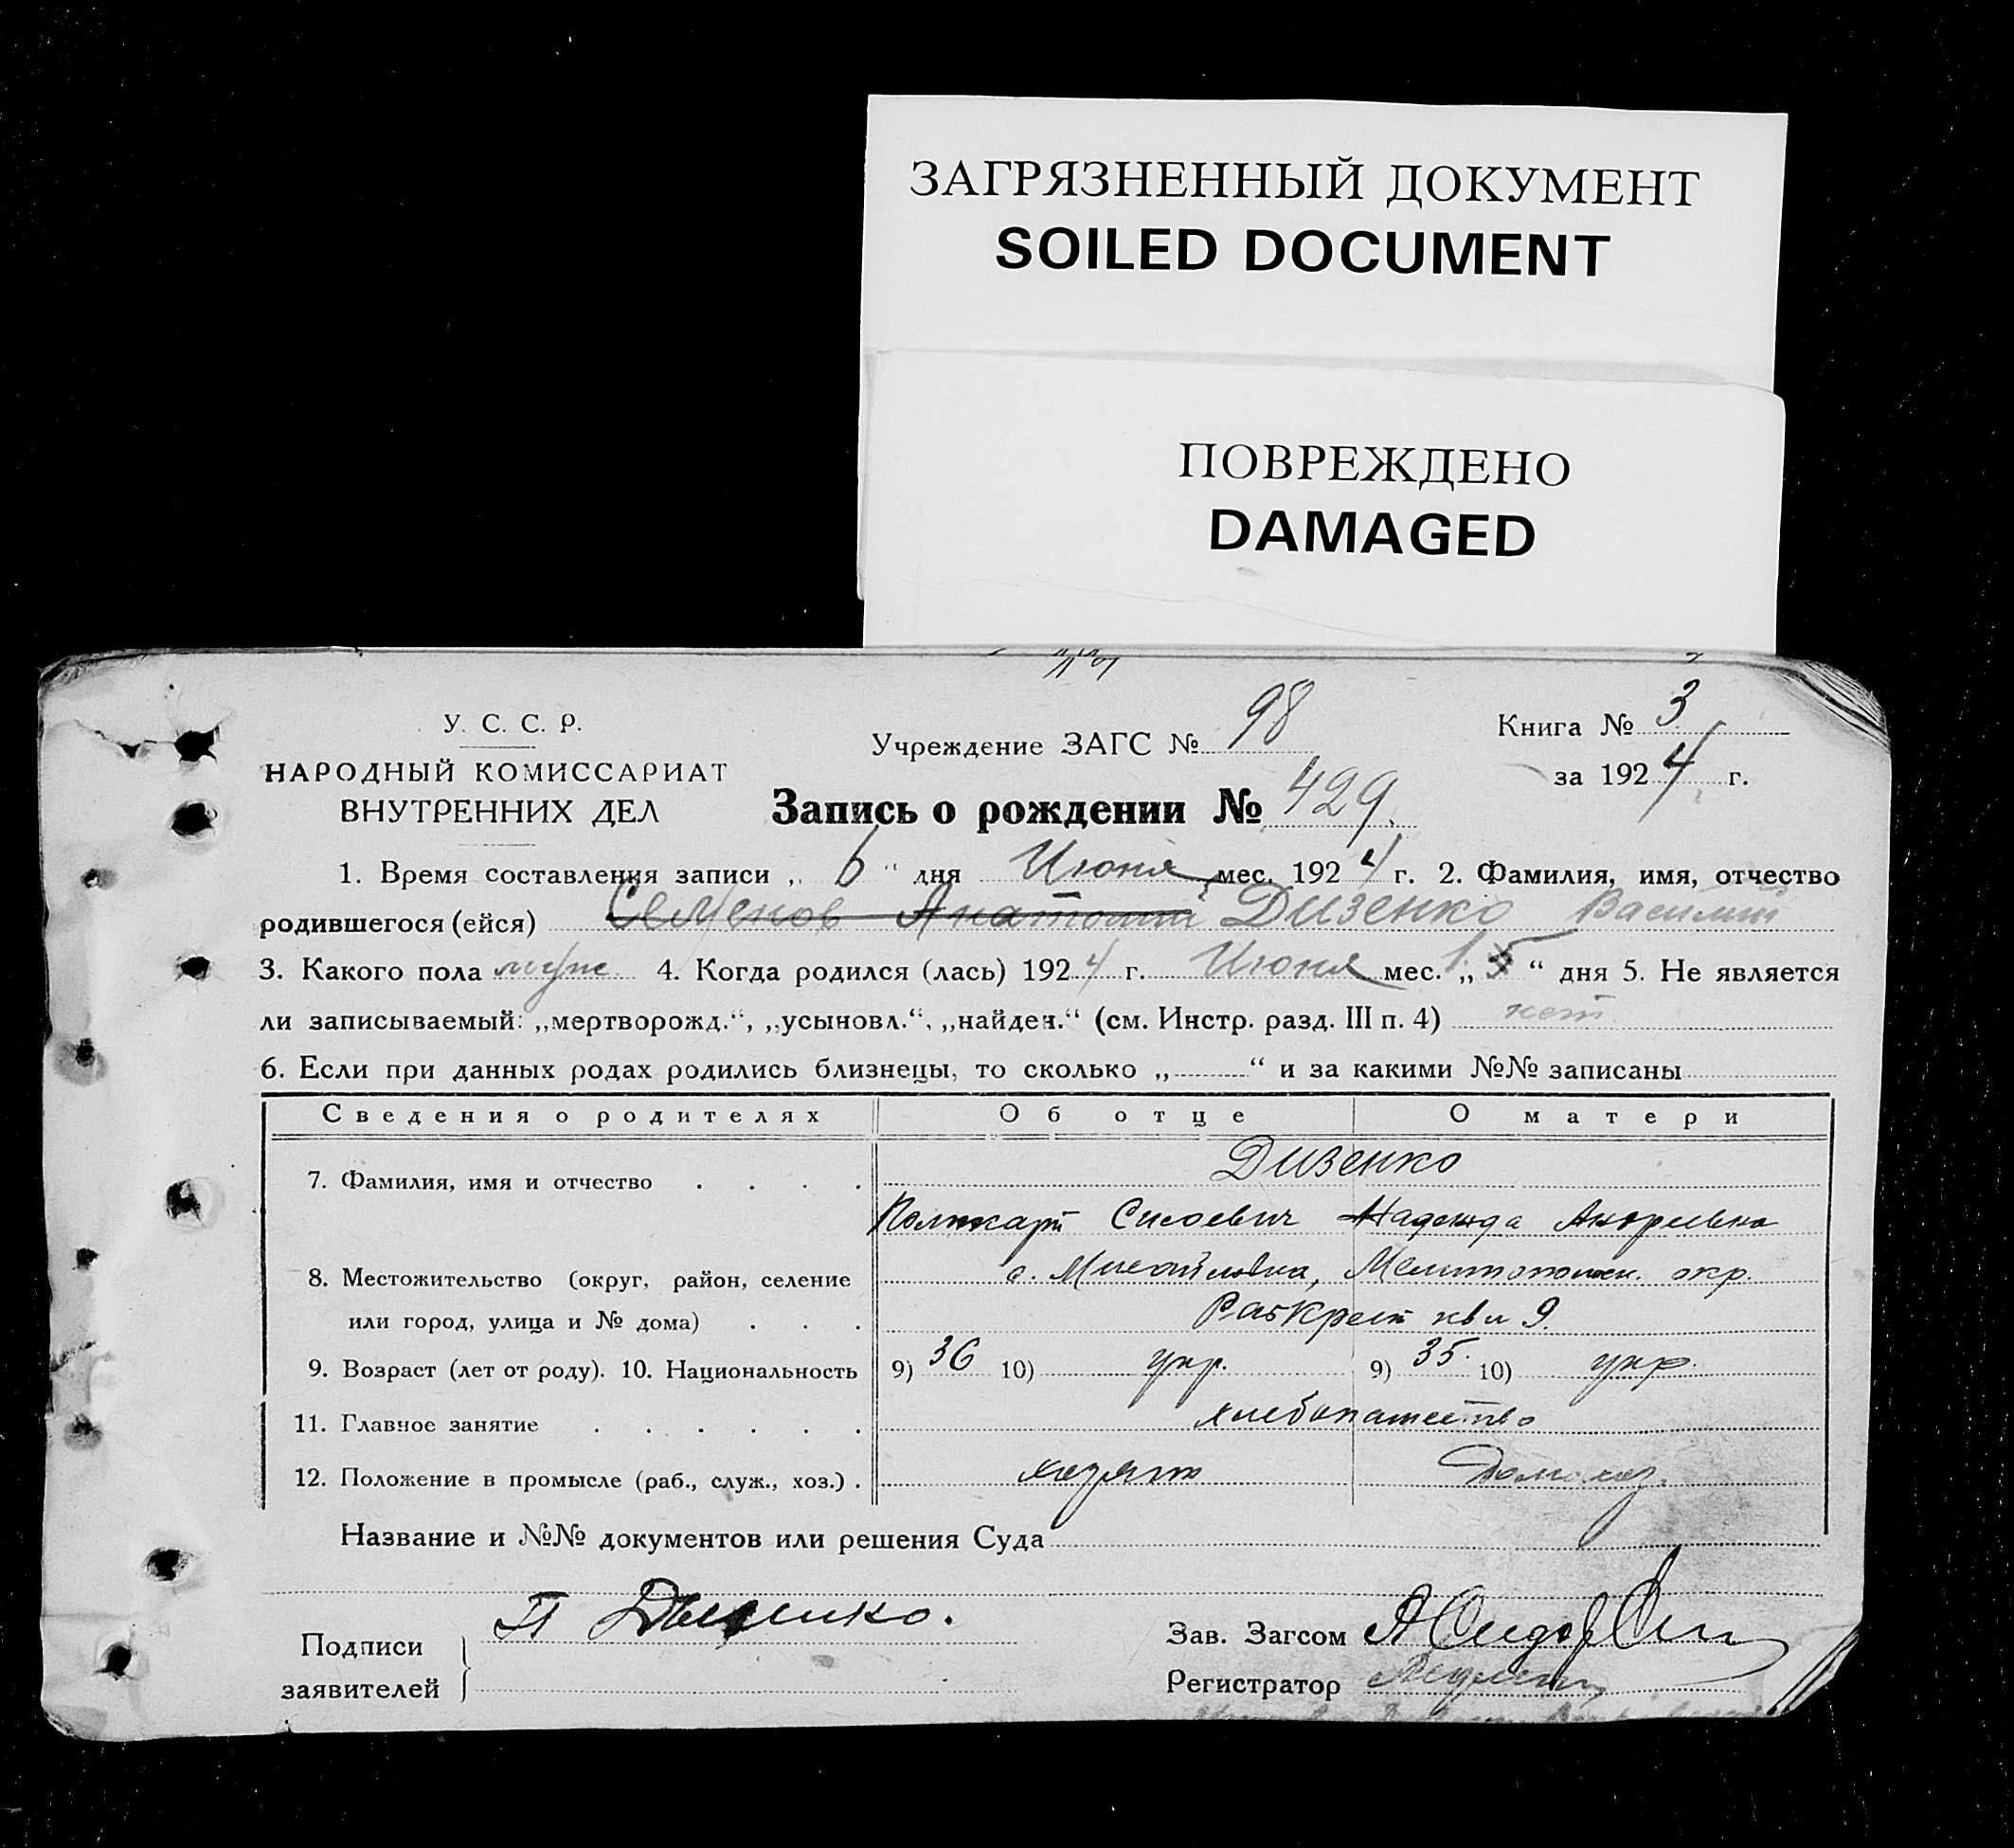 ЗАГРЯЗНЕННЫЙ ДОКУМЕНТ
SOILED DOCUMENT
ПОВРЕЖДЕНО
DAMAGED
У. С. С. Р.
НАРОДНЫЙ КОМИССАРИАТ
ВНУТРЕННИХ ДЕЛ
Учреждение ЗАГС № 98
Книга № 3
за 1924 г.
Запись о рождении № 429
1. Время составления записи „ 6 “ дня Июня мес. 1924 г. 2. Фамилия, имя, отчество
родившегося (ейся) Семенов Анатолий Дизенко Василий
3. Какого пола муж 4. Когда родился (лась) 1924 г. Июня мес. „ “ дня 5. Не является
ли записываемый: „мертворожд.“, „усыновл.“, „найден.“ (см. Инстр. разд. III п. 4) нет
6. Если при данных родах родились близнецы, то сколько „ “ и за какими №№ записаны
Сведения о родителях Об отце О матери
7. Фамилия, имя и отчество . . . . Дизенко
Поликарп Сысоевич Надежда Андреевна
8. Местожительство (округ, район, селение с. Михайловка, окр.
или город, улица и № дома) . . . 9.
9. Возраст (лет от роду). 10. Национальность 9) 36 10) укр. 9) 35 10) укр.
11. Главное занятие . . . . . . хлебопашество
12. Положение в промысле (раб., служ., хоз.) . хозяин Домохоз.
Название и №№ документов или решения Суда
Подписи
заявителей
П Дызенко.
Зав. Загсом
Регистратор